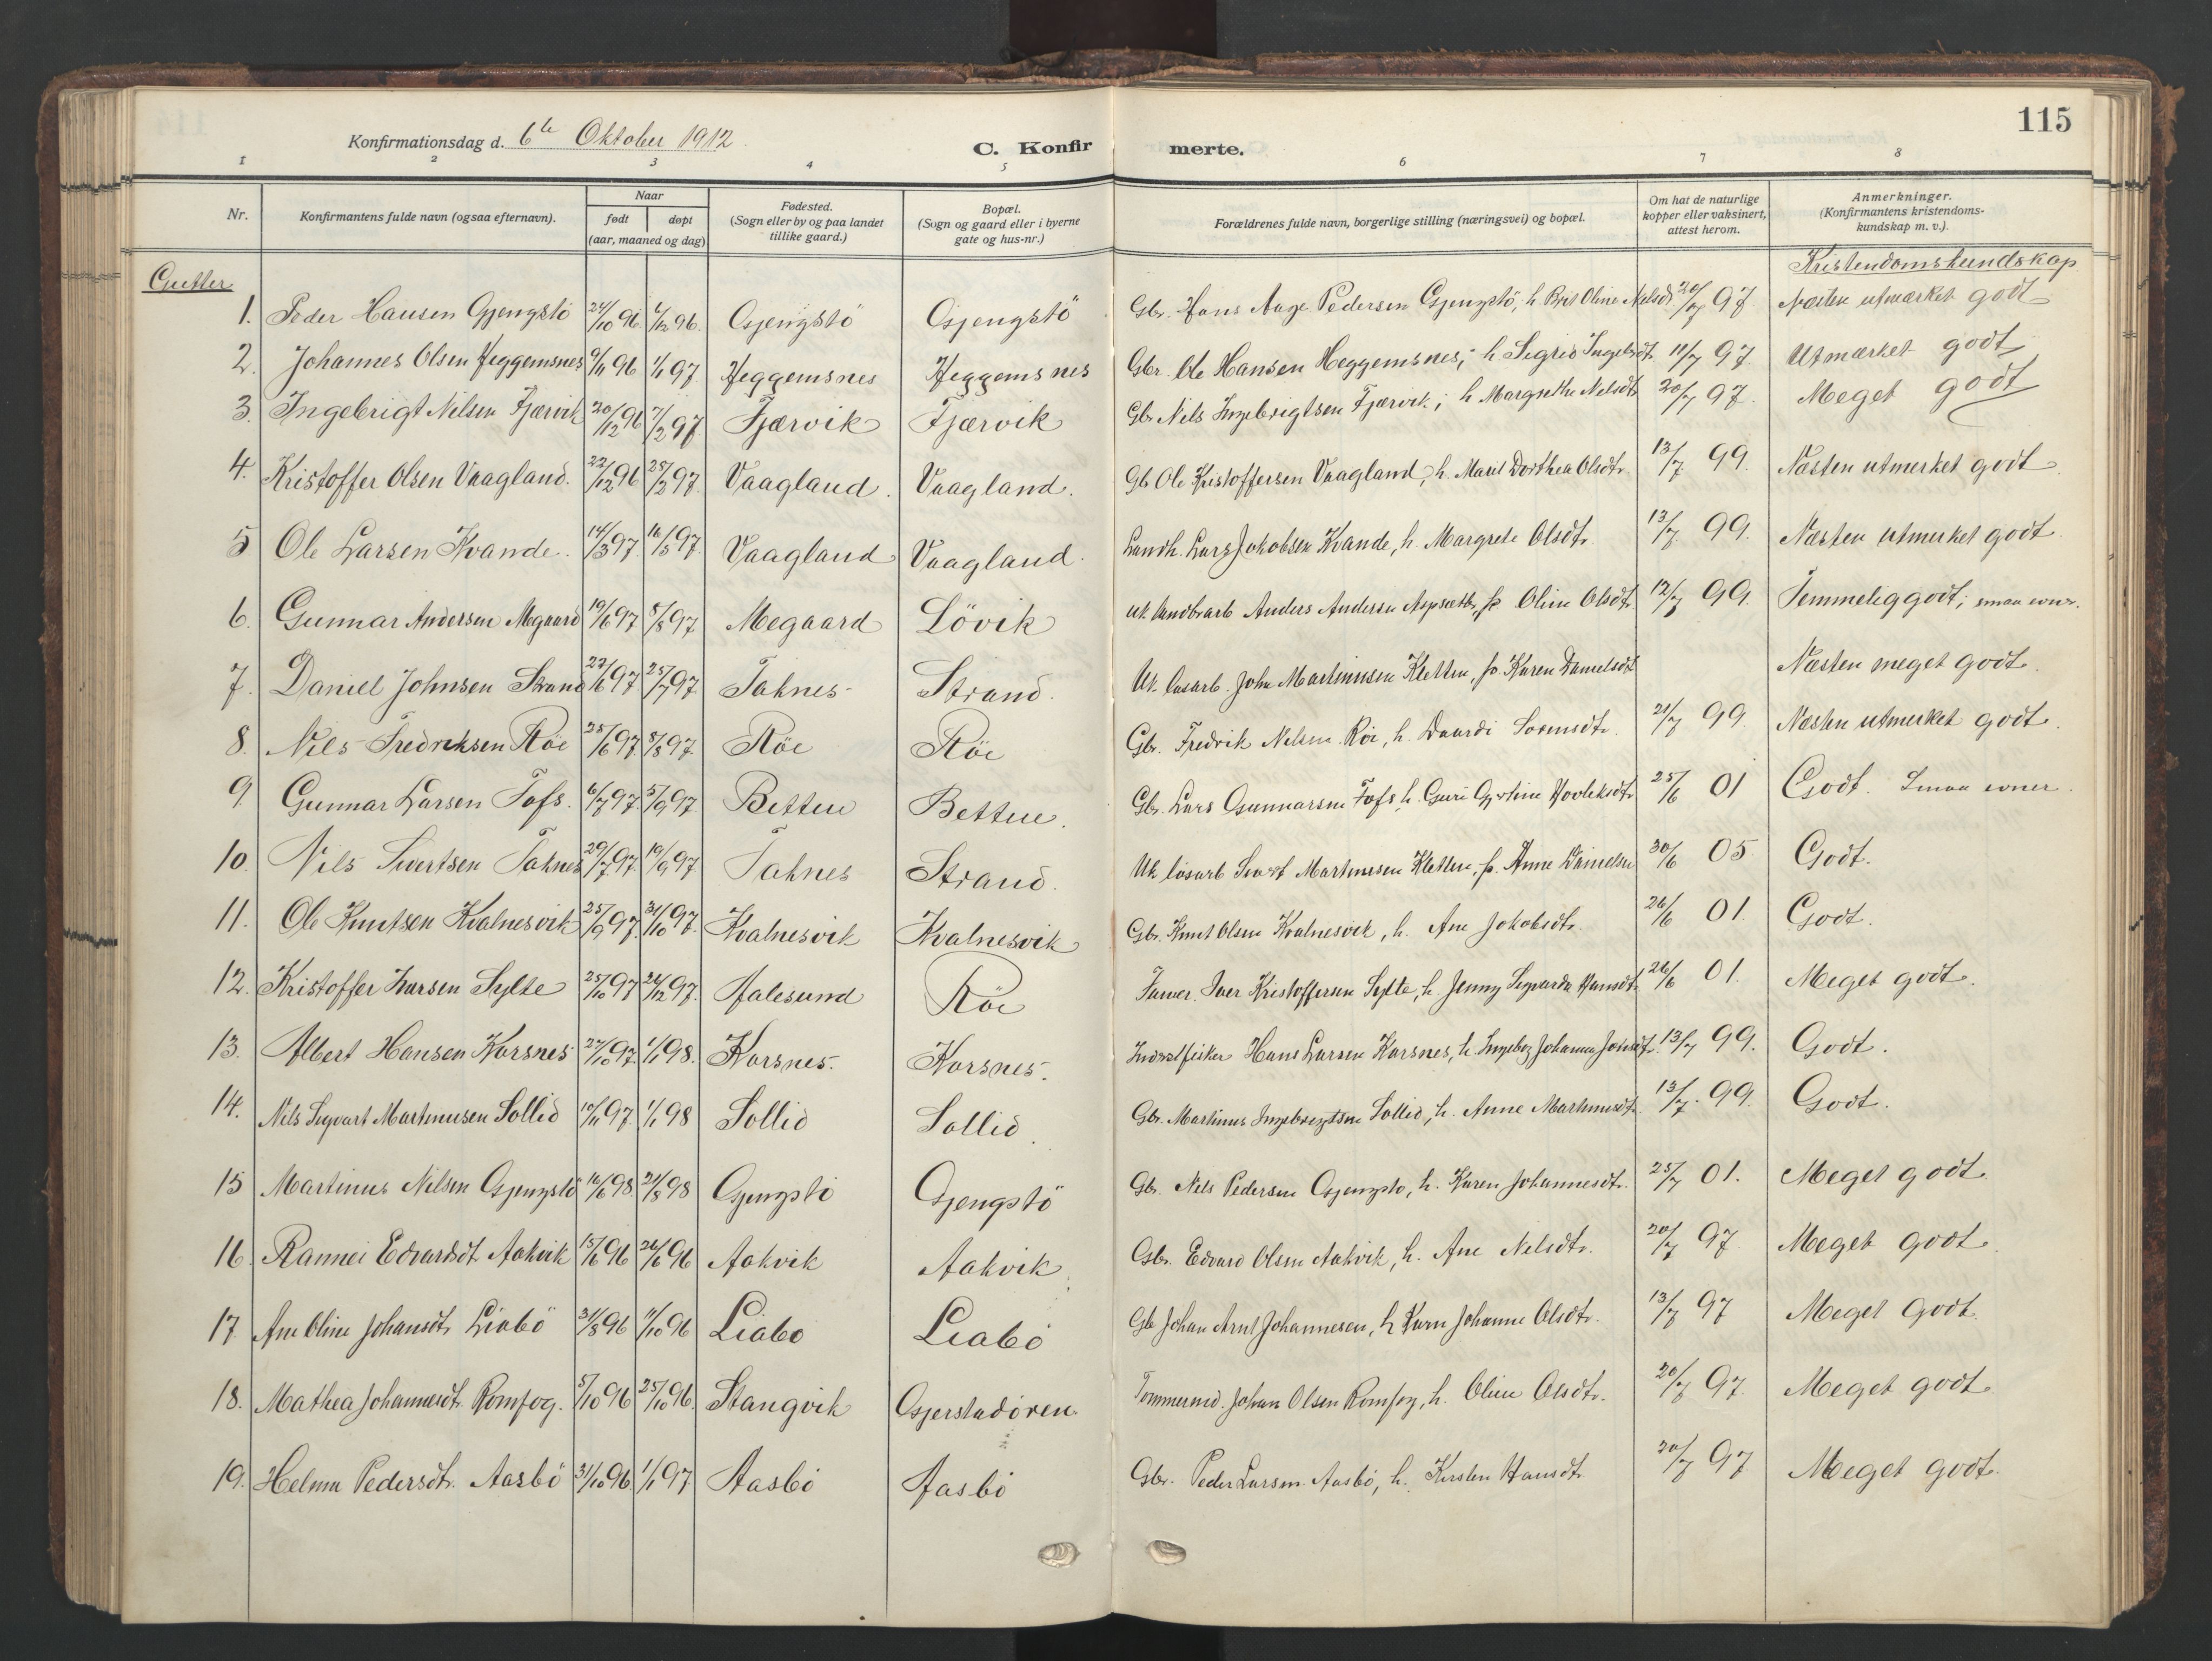 115
Konfirmationsdag d. 6te Oktober 1912
C. Konfirmerte.
1 2 3 4 5 6 7 8
Nr. | Konfirmantens fulde navn (ogsaa efternavn). | Naar født døpt (aar, maaned og dag) | Fødested. (Sogn eller by og paa landet tillike gaard.) | Bopæl. (Sogn og gaard eller i byerne gate og hus-nr.) | Forældrenes fulde navn, borgerlige stilling (næringsvei) og bopæl. | Om hat de naturlige kopper eller vaksinert, attest herom. | Anmerkninger. (Konfirmantens kristendoms-kundskap m. v.).
Gutter
Kristendomskundskap
1. Peder Hansen Gjengstö 24/10 96 6/12 96. Gjengstö Gjengstö Gbr. Hans Aage Pedersen Gjengstö, h. Brit Oline Nelsdt 20/7 97 Næsten utmærket godt
2. Johannes Olsen Heggemsnes 9/11 96 1/1 97 Heggemsnes Heggemsnes Gbr. Ole Hansen Heggemsnes; h Sigrid Ingebrdt. 11/7 97 Utmærket godt
3. Ingebrigt Nilsen Fjærvik 20/12 96 7/2 97 Fjærvik Fjærvik Gbr Nils Ingebrigtsen Fjærvik; h Margrethe Nelsdt 20/7 97. Meget godt
4. Kristoffer Olsen Vaagland. 22/12 96 28/2 97. Vaagland. Vaagland. Gb Ole Kristoffersen Vaagland, h. Marit Dorthea Olsdtr. 13/7 99. Næsten utmerket godt
5 Ole Larsen Kvande. 14/3 97. 16/5 97. Vaagland Vaagland. Landh. Lars Jakobsen Kvande, h. Margrete Olsdtr. 13/7 99. Næsten utmerket godt.
6. Gunnar Andersen Megaard 19/6 97 8/8 97. Megaard Lövik uk landbrarb Anders Andersen, p Oline Olsdtr 12/7 99. Temmelig godt; smaa evner.
7. Daniel Johnsen Strand 27/6 97 25/7 97. Taknes Strand. Uk. løsarb. John Martinusen Kletten, p. Karen Danielsdt Næsten meget godt.
8. Nils Fredriksen Röe 28/6 97 8/8 97 Röe Röe Gbr. Fredrik Nelsen Röe, h. Daardi Sorensdtr. 21/7 99 Næsten utmerket godt.
9. Gunnar Larsen Tofs. 6/7 97. 5/9 97. Betten Betten. Gbr. Lars Gunnarsen Tofs h. Guri Gjertine Hovleksdtr 25/6 01 Godt. Smaa evner.
10. Nils Sivertsen Taknes 29/7 97. 19/9 97 Taknes Strand. Uk løsarb Sivert Martinusen Kletten, p. Anne Danielsen 30/6 05 Godt.
11. Ole Knutsen Kvalnesvik 25/9 97. 31/10 97. Kvalnesvik Kvalnesvik Gbr. Knut Olsen Kvalnesvik, h. Ane Jakobsdtr. 26/6 01. Godt.
12. Kristoffer Iversen Sylte 25/10 97 26/12 97. Aalesund Röe Farver. Iver Kristoffersen Sylte, h. Jenny Segvarda Hansdt. 26/6 01. Meget godt.
13. Albert Hansen Korsnes 27/10 97. 1/1 98. Korsnes. Korsnes. Inderstfisker Hans Larsen Korsnes, h. Ingeborg Johanna Jonsdt. 13/7 99. Godt.
14. Nils Sigvart Martinusen Sollid 10/11 97. 1/1 98 Sollid Sollid. Gbr. Martinus Ingebrigtsen Sollid, h. Anne Martinusdt. 13/7. 99. Godt.
15 Martinus Nilsen Gjengstö 16/6 98. 21/8 98 Gjengstö Gjengstö Gbr. Nels Pedersen Gjengsto, h. Karen Johannesdtr. 25/7 01. Meget godt
16. Rannei Edvardsdt Aakvik 15/6 96 26/6 96 Aakvik Aakvik Gbr. Edvard Olsen Aakvik, h. Ane Nelsdtr. 20/7 97. Meget godt.
17. Ane Oline Johansdtr Liabö 31/8 96 11/10 96 Liabo Liabö Gb Johan Arnt Johannesen, h Karn Johanne Olsdtr. 13/7 97 Meget Godt.
18. Mathea Johannesdt. Romfog. 5/10 96 25/10 96. Stangvik Gjerstadören. Tommermd. Johan Olsen Romfog, h. Oline Olsdtr. 20/7 97. Meget godt.
19. Helma Pedersdtr. Aasbö 31/10 96. 1/1 97. Aasbö Aasbö Gbr. Peder Larsen Aasbö, h. Kirsten Hansdt. 20/7 97 Meget godt.